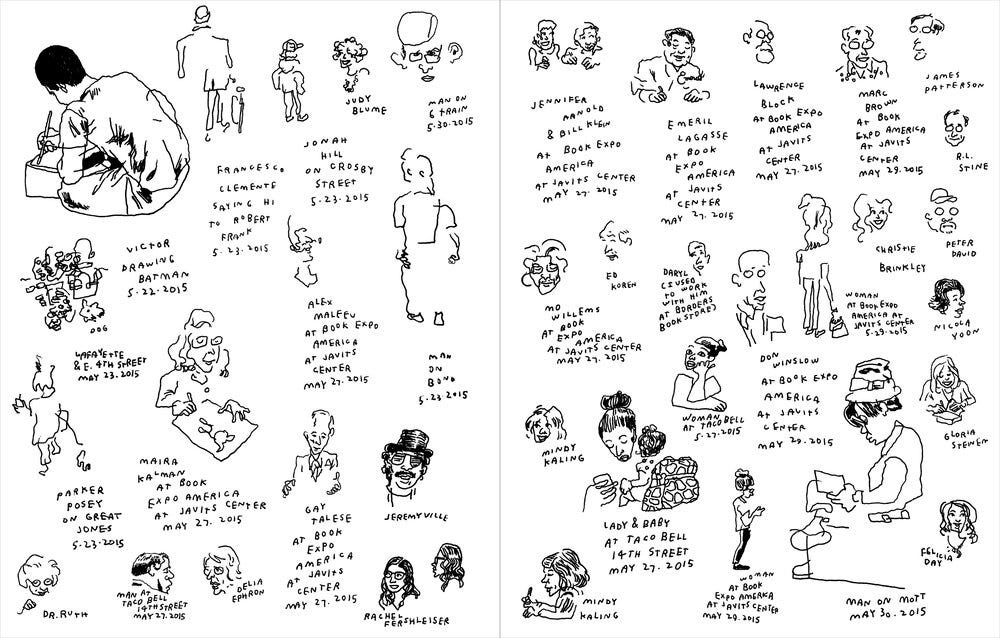 JUDY
BLUME
MAN ON
6 TRAIN
5.30.2015
FRANCESCO
CLEMENTE
SAYING HI
TO ROBERT
FRANK
5.23.2015
JONAH
HILL
ON CROSBY
STREET
5.23.2015
VICTOR
DRAWING
BATMAN
5.22.2015
DOG
LAFAYETTE
& E. 4TH STREET
MAY 23.2015
ALEX
MALEEV
AT BOOK EXPO
AMERICA
AT JAVITS
CENTER
MAY 27.2015
MAN
ON
BOND
5.23.2015
PARKER
POSEY
ON GREAT
JONES
5.23.2015
MAIRA
KALMAN
AT BOOK
EXPO AMERICA
AT JAVITS CENTER
MAY 27.2015
GAY
TALESE
AT BOOK
EXPO
AMERICA
AT JAVITS
CENTER
MAY 27.2015
JEREMYVILLE
DR.RUTH
MAN AT
TACO BELL
14TH STREET
MAY 27.2015
DELIA
EPHRON
RACHEL
FERSHLEISER
JENNIFER
ARNOLD
& BILL KLEIN
AT BOOK EXPO
AMERICA
AT JAVITS CENTER
MAY 27.2015
EMERIL
LAGASSE
AT BOOK
EXPO
AMERICA
AT JAVITS
CENTER
MAY 27.2015
LAWRENCE
BLOCK
AT BOOK EXPO
AMERICA
AT JAVITS
CENTER
MAY 27.2015
MARC
BROWN
AT BOOK
EXPO AMERICA
AT JAVITS
CENTER
MAY 29.2015
JAMES
PATTERSON
R.L.
STINE
MO
WILLEMS
AT BOOK
EXPO AMERICA
AT JAVITS CENTER
MAY 27.2015
ED
KOREN
DARYL
(I USED
TO WORK
WITH HIM
AT BORDERS
BOOKSTORE)
CHRISTIE
BRINKLEY
PETER
DAVID
WOMAN
AT BOOK EXPO
AMERICA AT
JAVITS CENTER
5.29.2015
NICOLA
YOON
DON
WINSLOW
AT BOOK EXPO
AMERICA
AT JAVITS
CENTER
MAY 29.2015
WOMAN
AT TACO BELL
5.27.2015
MINDY
KALING
GLORIA
STEINEM
LADY & BABY
AT TACO BELL
14TH STREET
MAY 27.2015
FELICIA
DAY
MINDY
KALING
WOMAN
AT BOOK
EXPO AMERICA
AT JAVITS CENTER
MAY 29.2015
MAN ON MOTT
MAY 30.2015